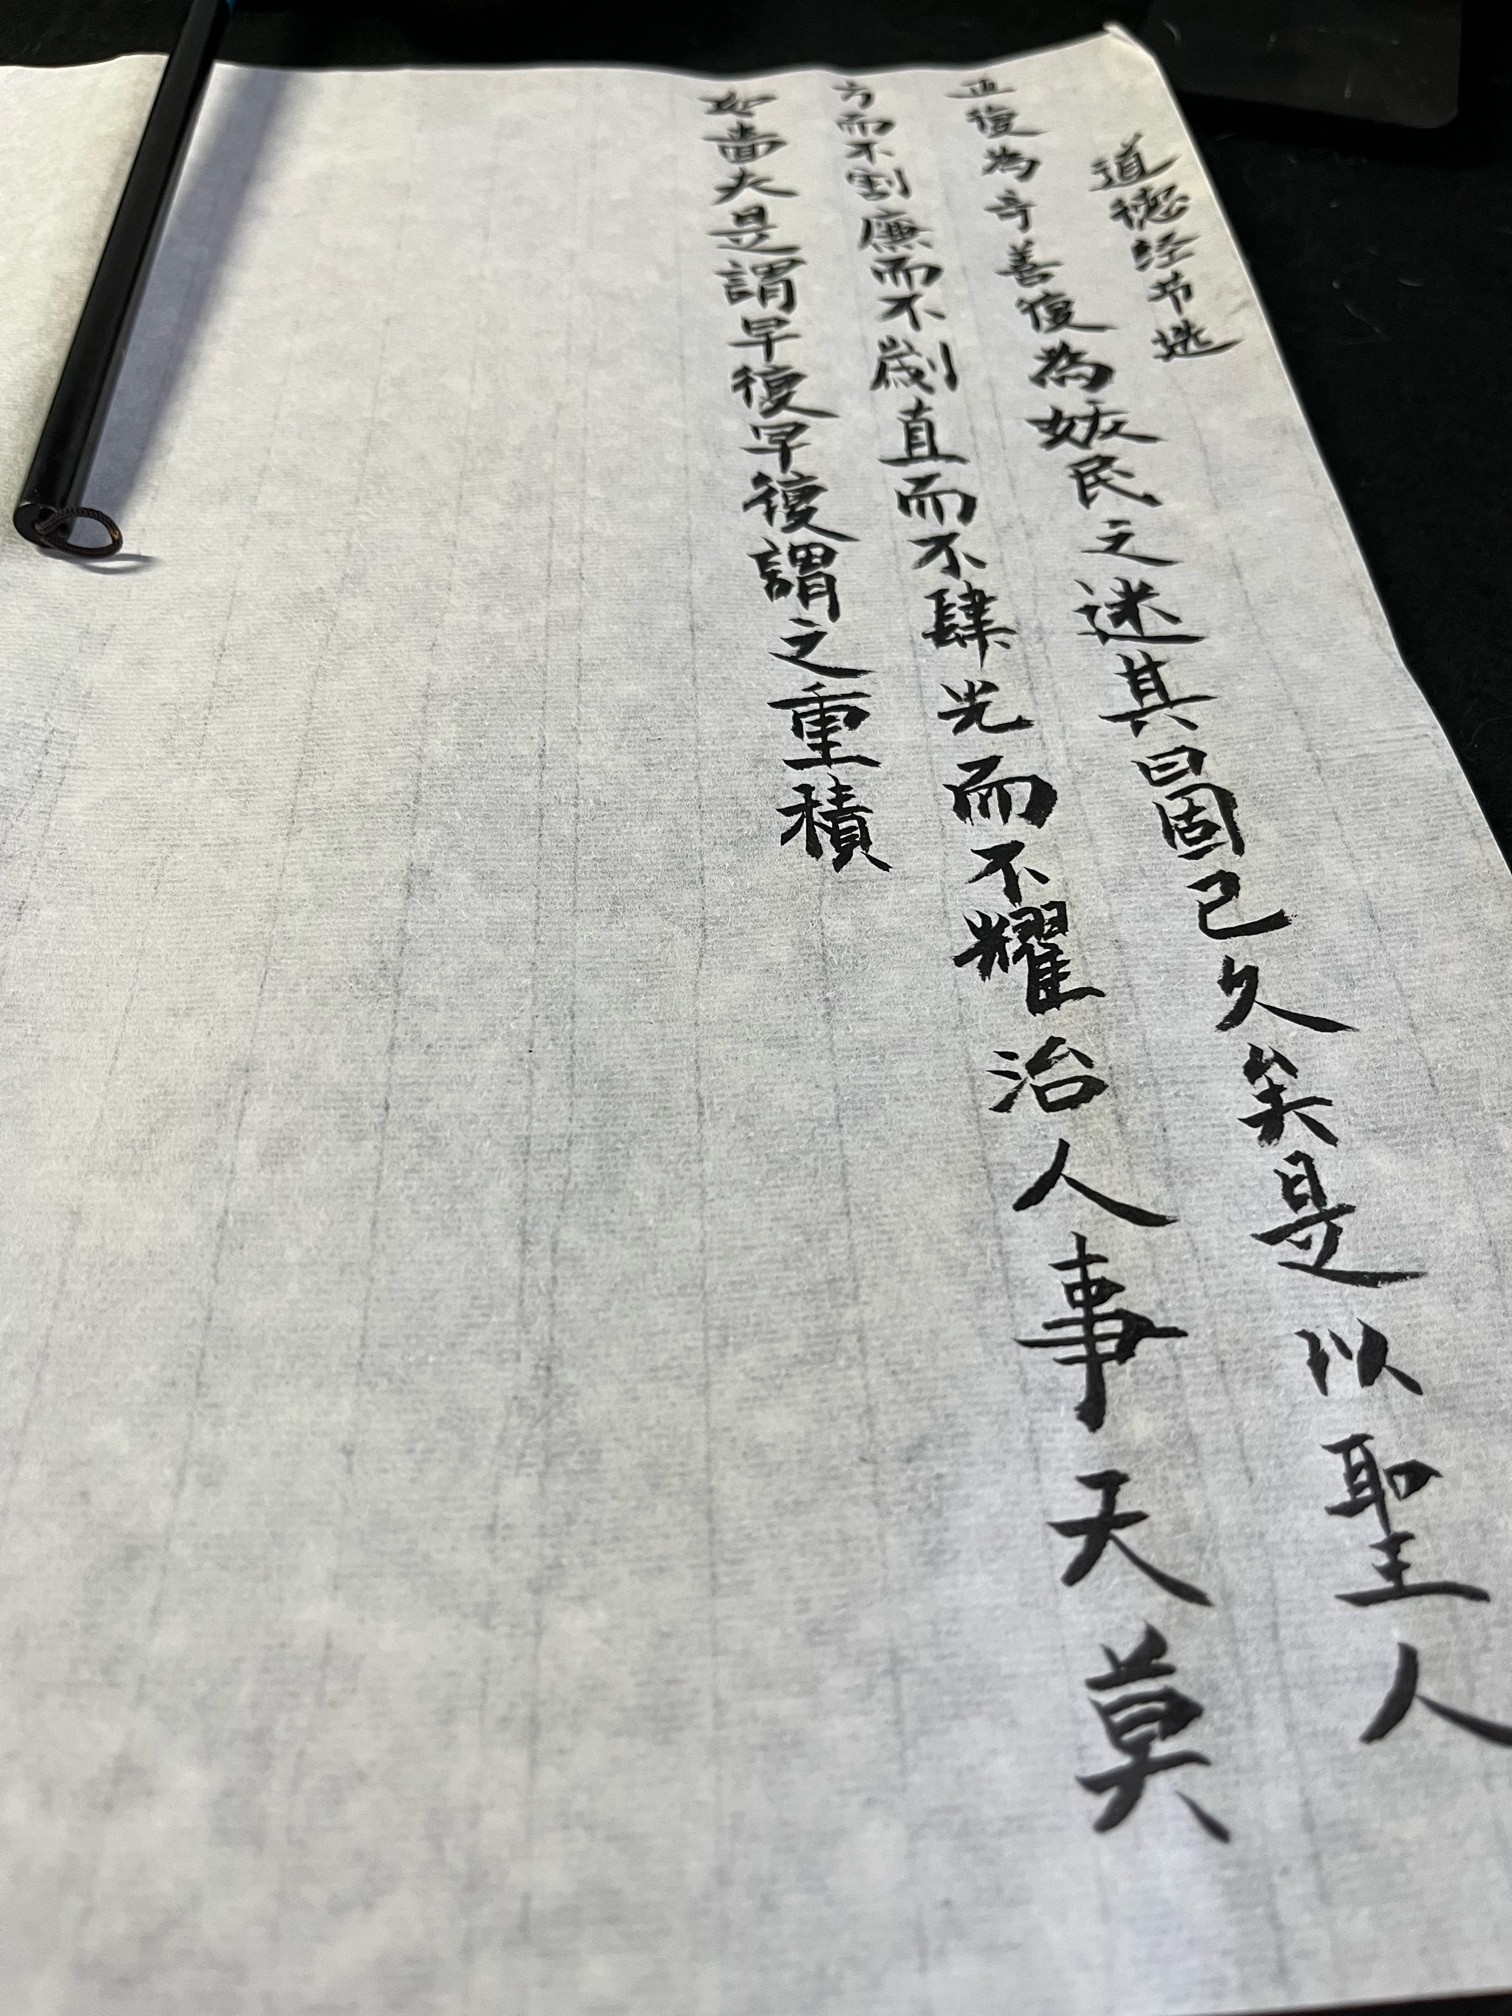 道德经节选
正復為奇善復為妖民之迷其日固已久矣是以聖人
方而不割廉而不劌直而不肆光而不耀治人事天莫
如嗇夫是謂早復早復謂之重積